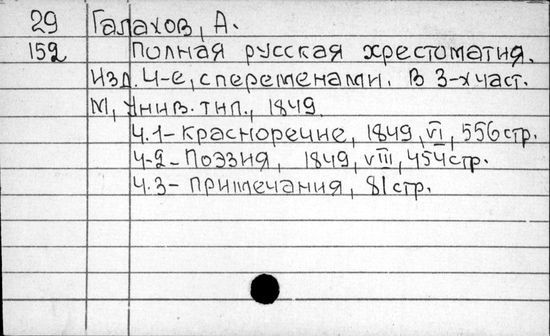 29 Галахов, А.
152 Полная русская хрестоматия.
Изд. 4-е, с переменами. В 3-х част.
М, Унив. тип., 1849.
Ч.1 - Красноречие, 1849, VI, 556 стр.
Ч-2 - Поэзия, 1849, VIII, 454 стр.
Ч.3 - Примечания, 81 стр.